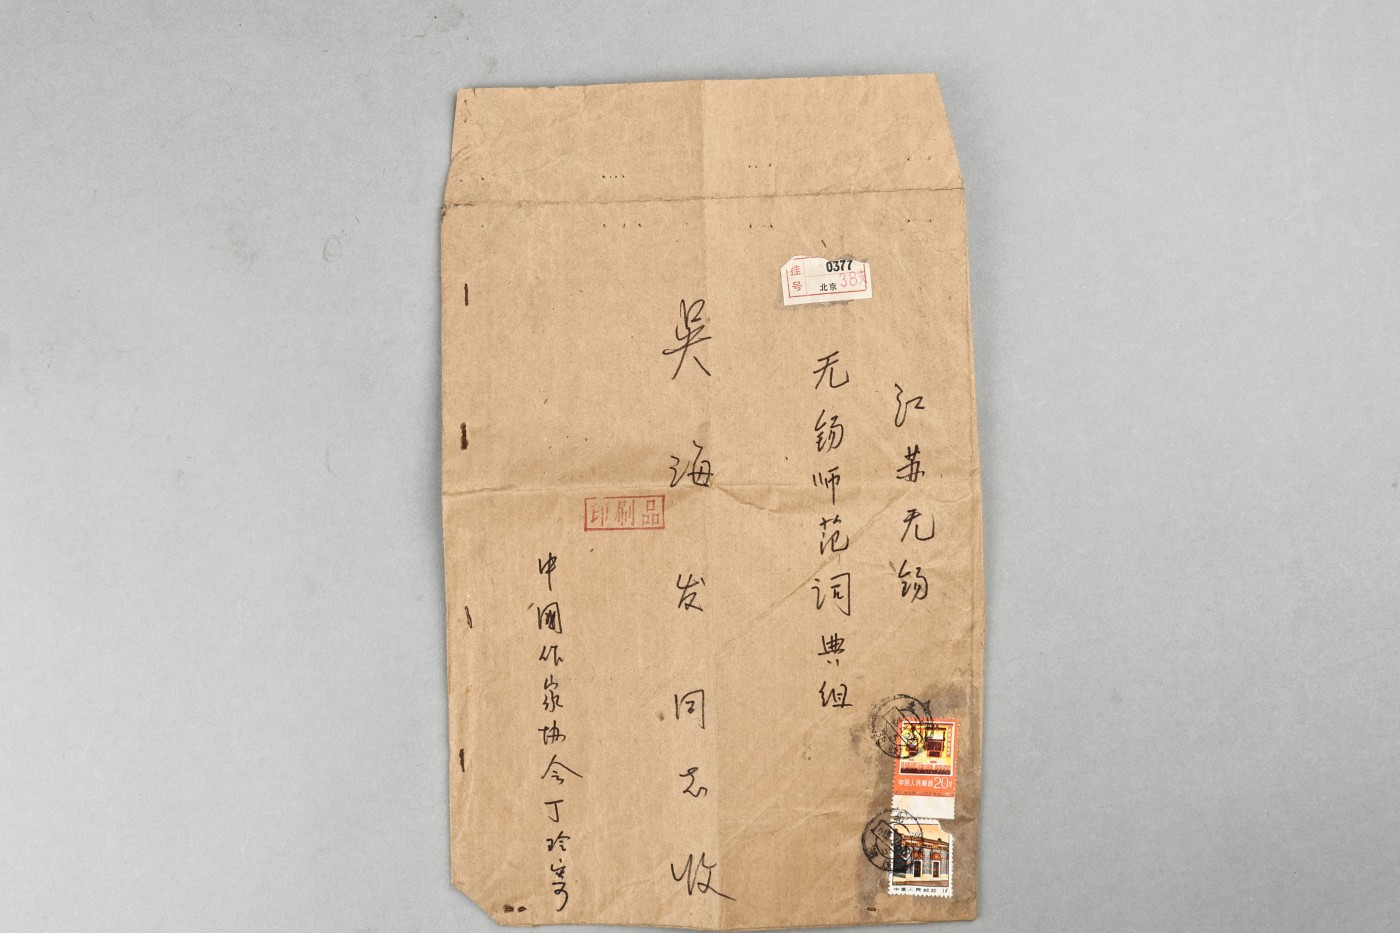 江苏无锡
无锡师范词典组
吴海发同志收
中國作家协会丁玲寄
印刷品
挂号
0377
北京
38支
中国人民邮政 20分
中国人民邮政